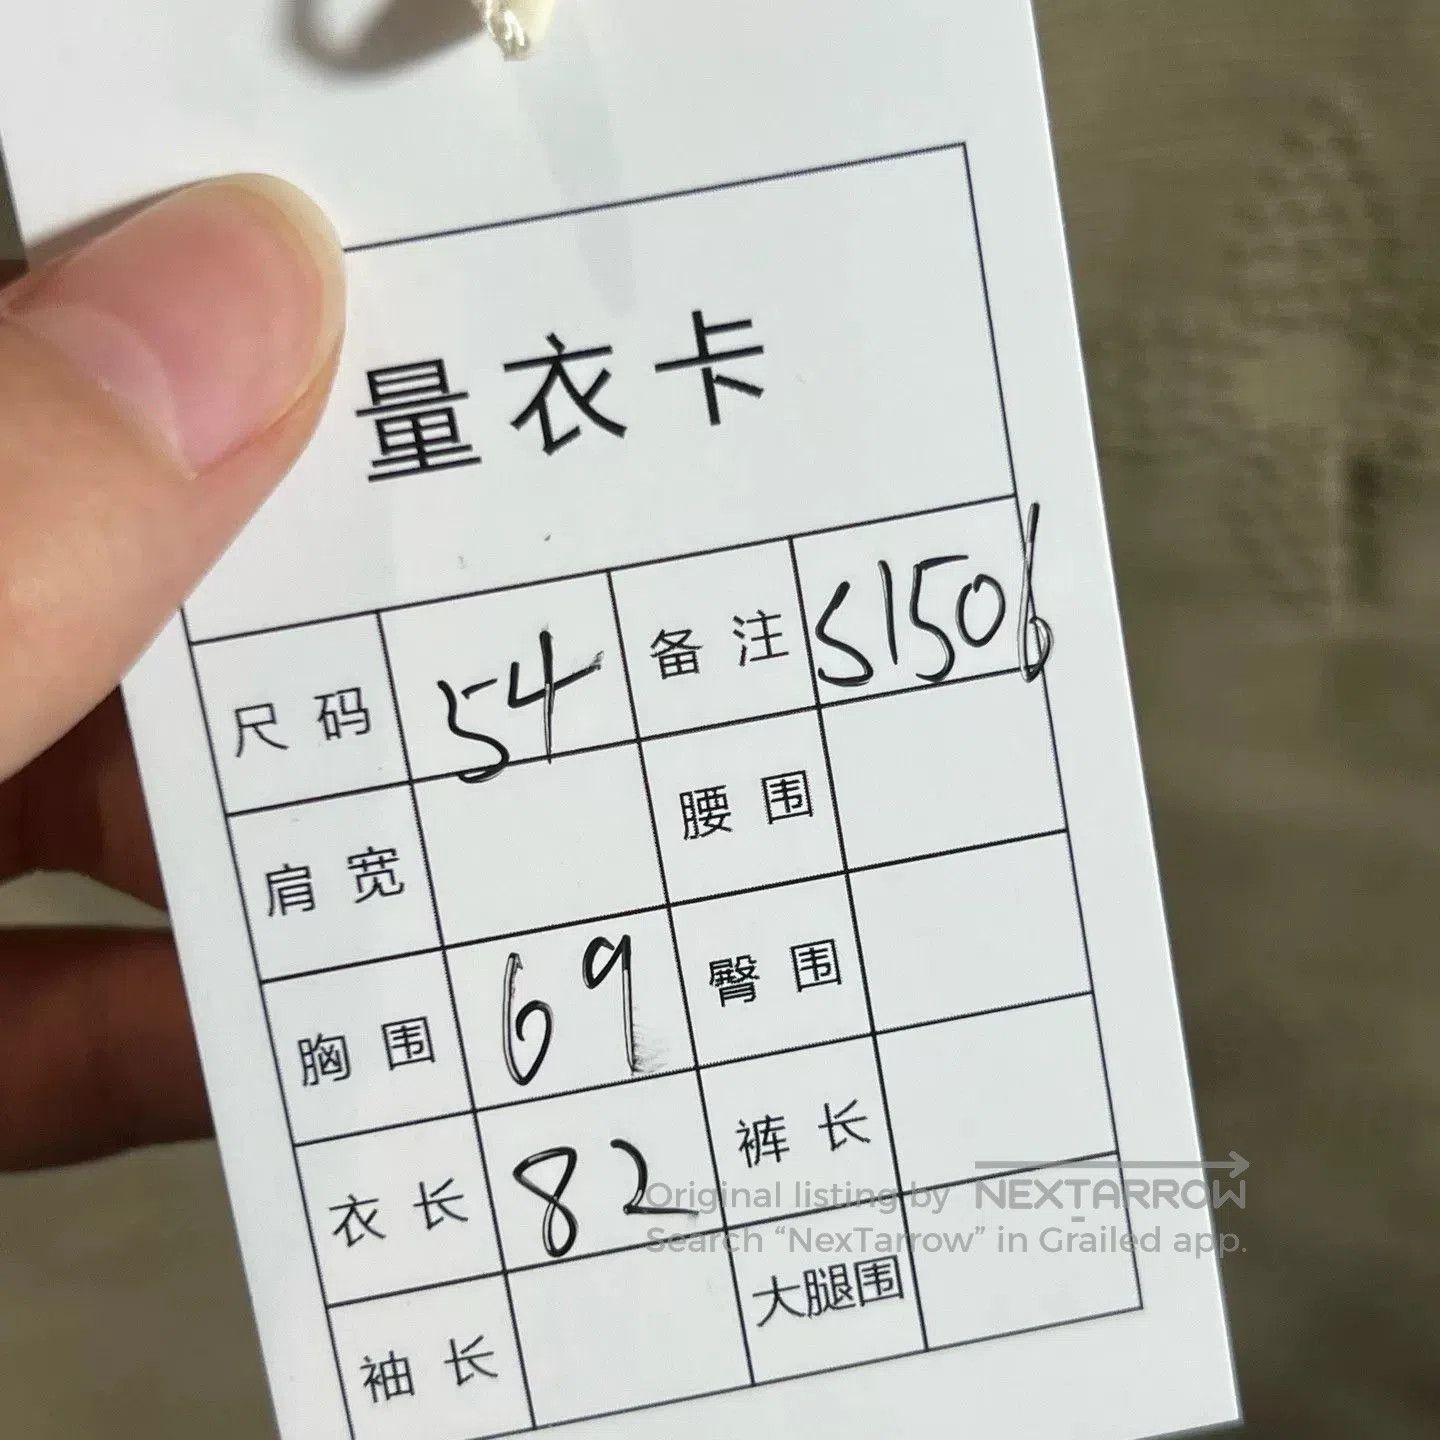 量衣卡
尺码 54 备注 S1506
肩宽 腰围
胸围 69 臀围
衣长 82 裤长
袖长 大腿围
Original listing by NEXTARROW
Search “NexTarrow” in Grailed app.